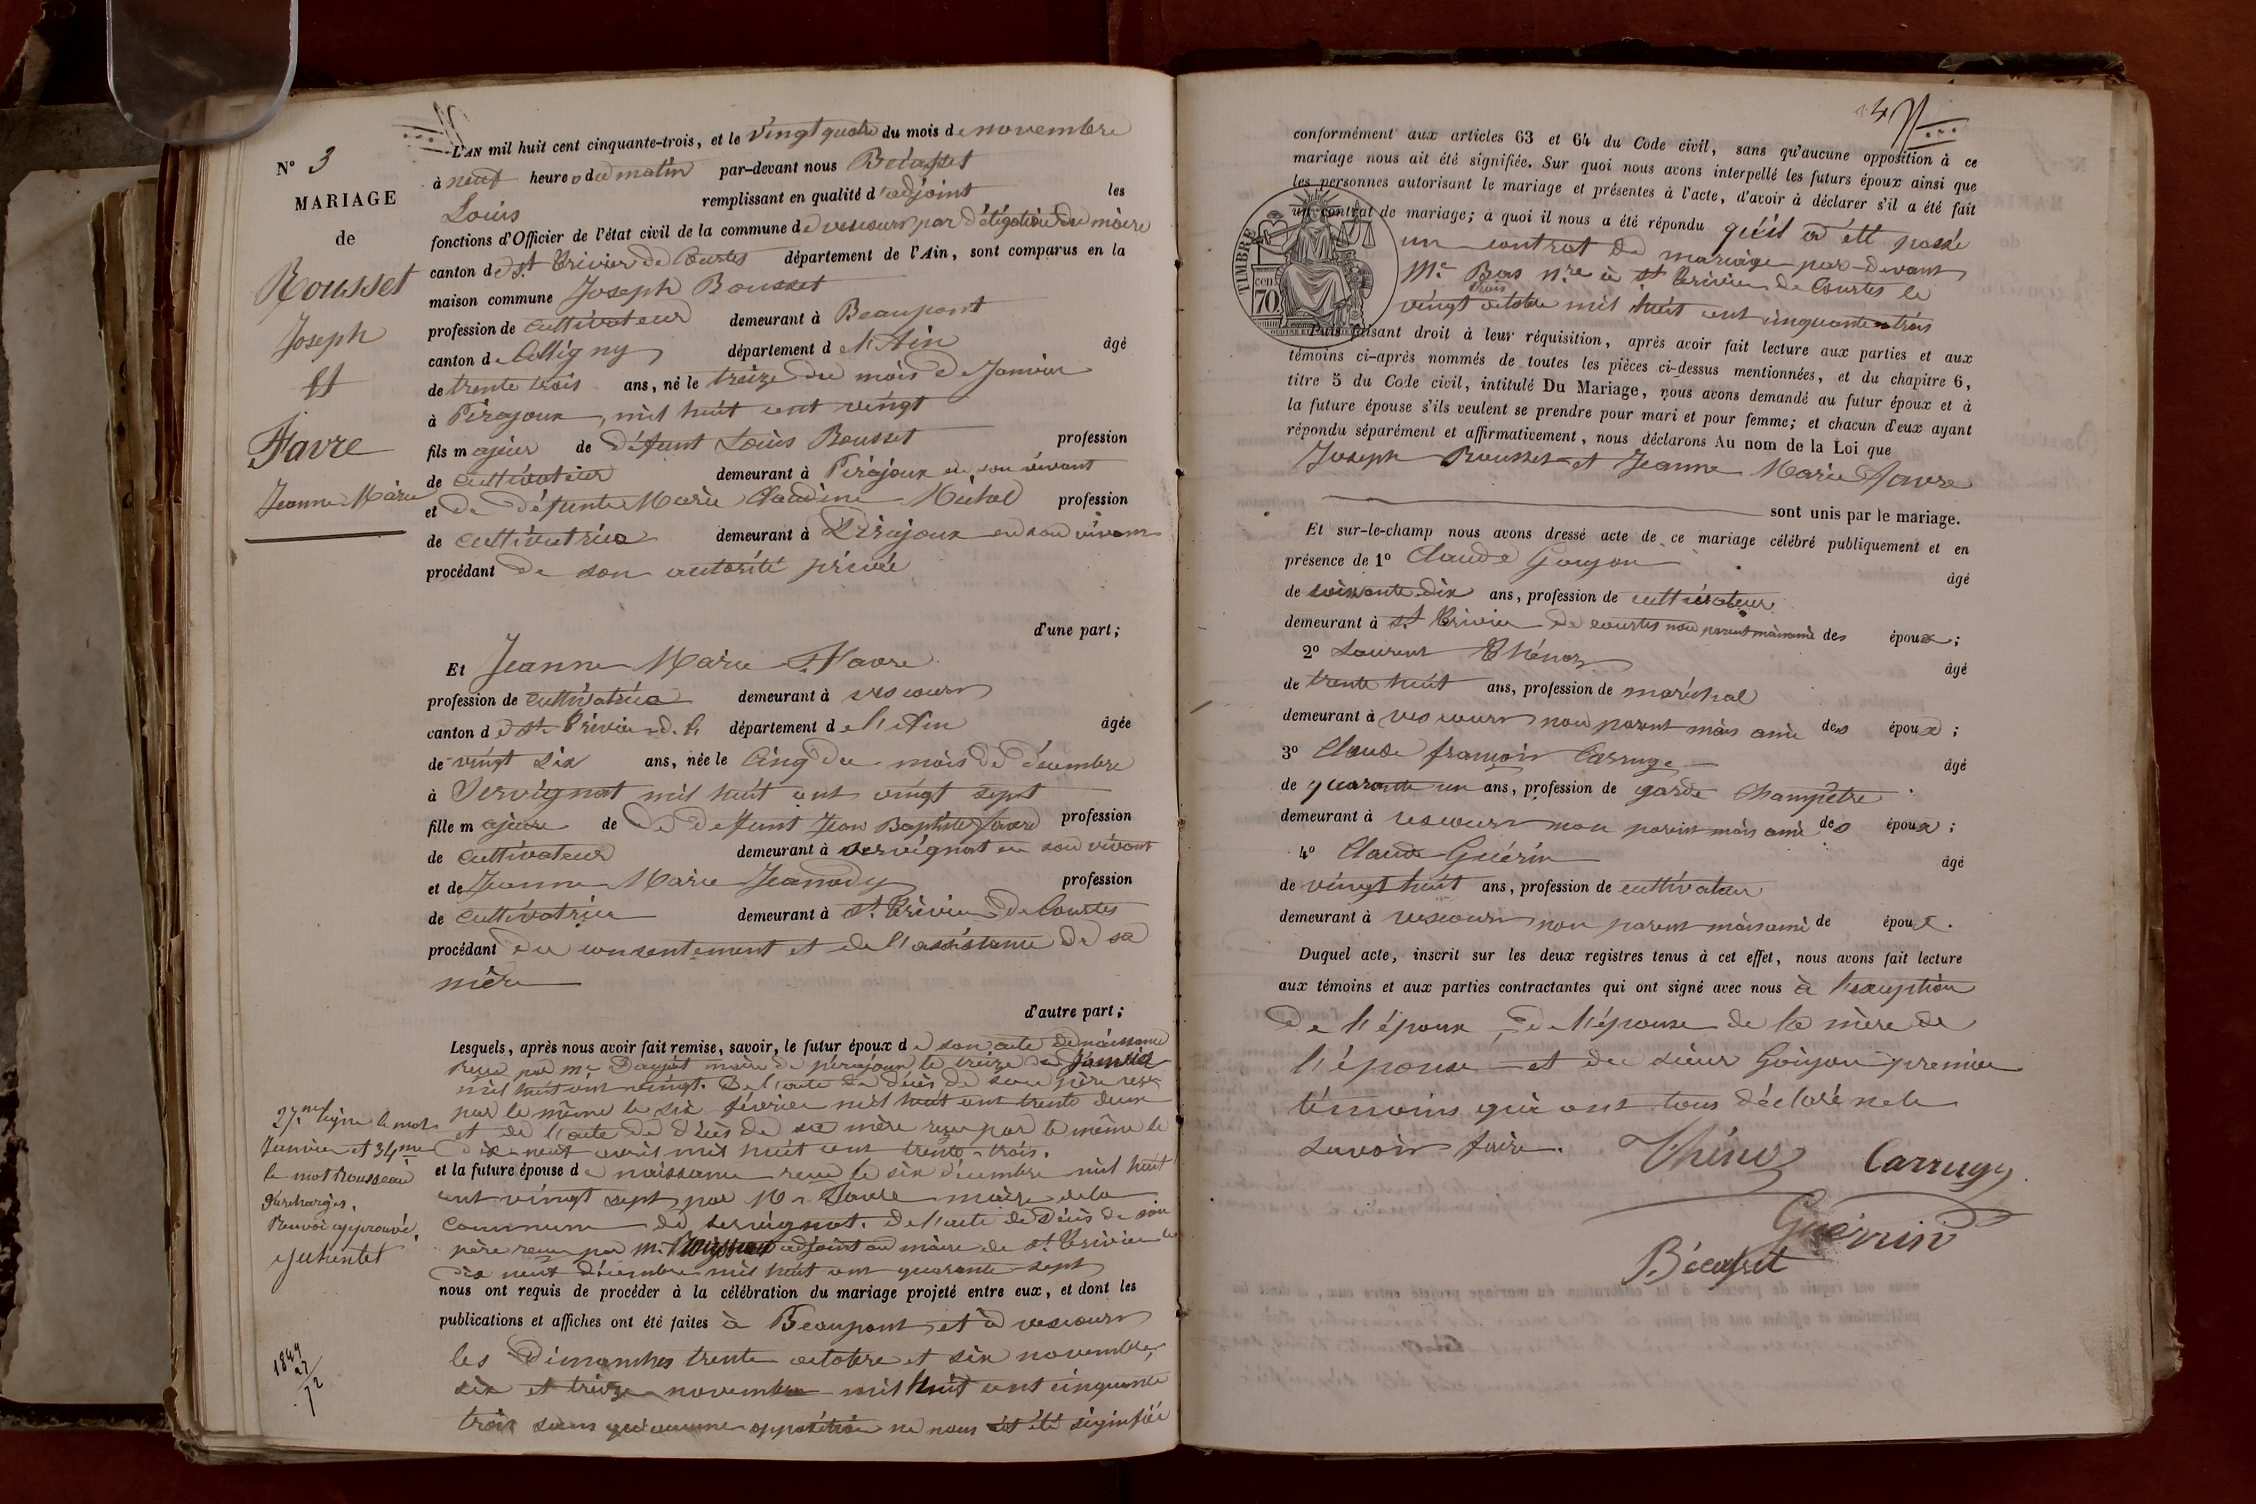 N° 3
MARIAGE
de
Rousset
Joseph
Et
Favre
Jeanne Marie
L'AN mil huit cent cinquante-trois, et le vingt quatre du mois de novembre
à neuf heures du matin par-devant nous Bécasset
Louis remplissant en qualité d'adjoint les
fonctions d'Officier de l'état civil de la commune de vescours par délégation du maire
canton de St Trivier de Courtes département de l'Ain, sont comparus en la
maison commune Joseph Rousset
profession de cultivateur demeurant à Beaupont
canton de Colligny département de l'Ain âgé
de trente trois ans, né le treize du mois de Janvier
à Pirajoux, mil huit cent vingt
fils majeur de défunt Louis Rousset profession
de cultivateur demeurant à Pirajoux en son vivant
et de défunte Marie Claudine Michel profession
de cultivatrice demeurant à Pirajoux en son vivant
procédant de son autorité privée
d'une part;
Et Jeanne Marie Favre
profession de cultivatrice demeurant à vescours
canton de St Trivier d. C. département de l'Ain âgée
de vingt six ans, née le Cinq du mois de décembre
à Servignat mil huit cent vingt sept
fille majeure de De défunt Jean Baptiste Favre profession
de cultivateur demeurant à servignat en son vivant
et de Jeanne Marie Jeanody profession
de cultivatrice demeurant à St Trivier de Courtes
procédant du consentement et de l'assistance de sa
mère
d'autre part;
Lesquels, après nous avoir fait remise, savoir, le futur époux de son acte de naissance
reçu par mr maire de pirajoux, le treize de Janvier
mil huit cent vingt. De l'acte de décès de son père reçu
par le même le six février mil huit cent trente deux
et de l'acte de décès de sa mère reçu par le même le
dix neuf avril mil huit cent trente-trois.
et la future épouse de naissance reçu le six décembre mil huit
cent vingt sept par Mr maire de la
commune de servignat. De l'acte de décès de son
père reçu par mr adjoint au maire de St Trivier le
dix neuf décembre mil huit cent quarante sept
nous ont requis de procéder à la célébration du mariage projeté entre eux, et dont les
publications et affiches ont été faites à Beaupont et à vescours
les Dimanches trente octobre et six novembre,
six et treize novembre mil huit cent cinquante
trois sans qu'aucune opposition ne nous ait été siginfiée
27me ligne le mot
Janvier et 34me
le mot Rousseau
surchargés.
Renvoi approuvé.
1849
27
12
4
conformément aux articles 63 et 64 du Code civil, sans qu'aucune opposition à ce
mariage nous ait été signifiée. Sur quoi nous avons interpellé les futurs époux ainsi que
les personnes autorisant le mariage et présentes à l'acte, d'avoir à déclarer s'il a été fait
un contrat de mariage; à quoi il nous a été répondu qu'il a été passé
un contrat de mariage par-devant
Me Bas nre à St Trivier de Courtes le
vingt trois octobre mil huit cent cinquante trois
TIMBRE
cen
70
Puis faisant droit à leur réquisition, après avoir fait lecture aux parties et aux
témoins ci-après nommés de toutes les pièces ci-dessus mentionnées, et du chapitre 6,
titre 5 du Code civil, intitulé Du Mariage, nous avons demandé au futur époux et à
la future épouse s'ils veulent se prendre pour mari et pour femme; et chacun d'eux ayant
répondu séparément et affirmativement, nous déclarons Au nom de la Loi que
Joseph Rousset et Jeanne Marie Favre
sont unis par le mariage.
Et sur-le-champ nous avons dressé acte de ce mariage célébré publiquement et en
présence de 1° Claude Goujon âgé
de soixante-dix ans, profession de cultivateur
demeurant à St Trivier de courtes non parent mais ami des époux;
2° Laurent Thénoz âgé
de trente huit ans, profession de maréchal
demeurant à vescours non parent mais ami des époux;
3° Claude françois Carruge âgé
de quarante un ans, profession de garde champêtre
demeurant à vescours non parent mais ami des époux;
4° Claude Guérin âgé
de vingt huit ans, profession de cultivateur
demeurant à vescours non parent mais ami de époux.
Duquel acte, inscrit sur les deux registres tenus à cet effet, nous avons fait lecture
aux témoins et aux parties contractantes qui ont signé avec nous à l'exception
De l'époux, De l'épouse de la mère de
l'épouse et du sieur Goujon premier
témoins qui ont tous déclaré ne le
savoir faire. Thénoz Carruge
Guérrin
Bécasset